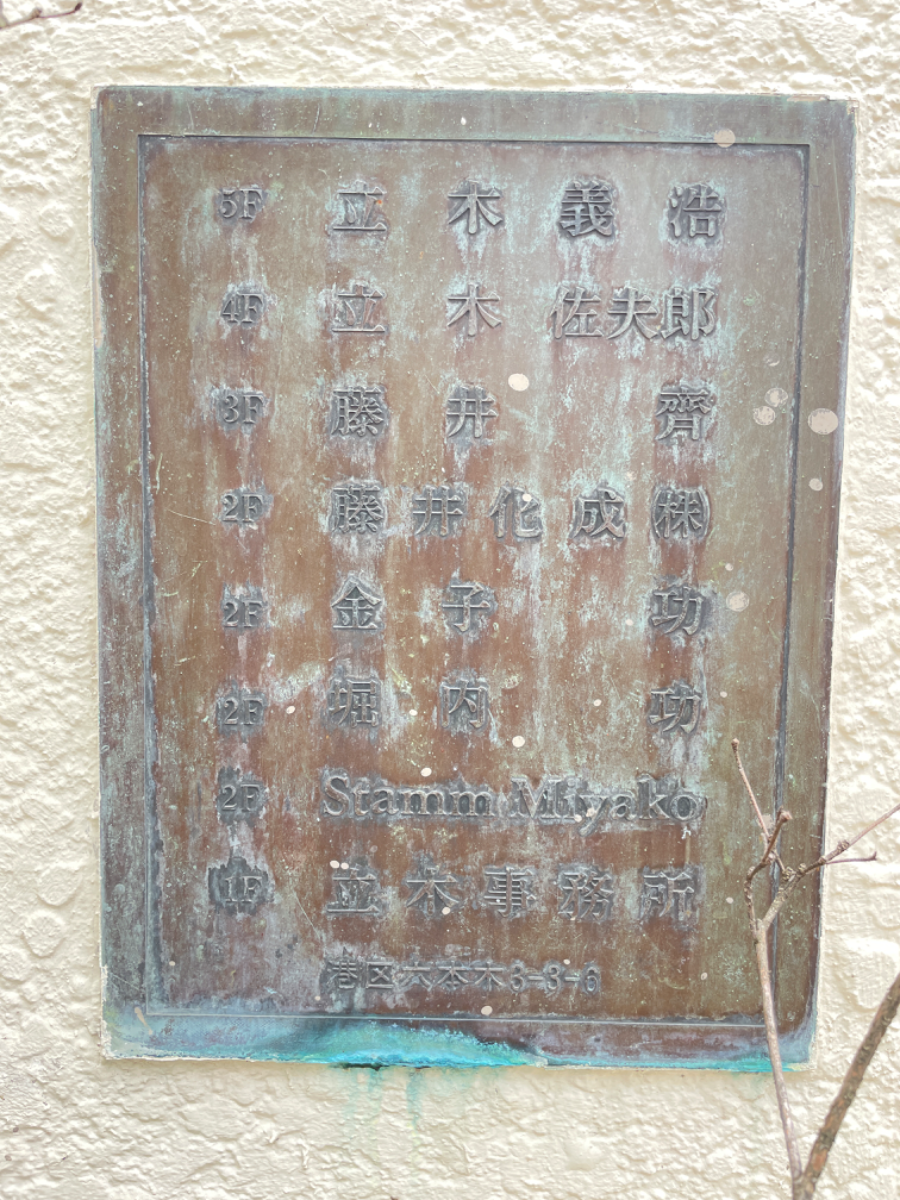 5F 立木義浩
4F 立木佐夫郎
3F 藤井齊
2F 藤井化成㈱
2F 金子功
2F 堀内功
2F Stamm Miyako
1F 立木事務所
港区六本木3-3-6